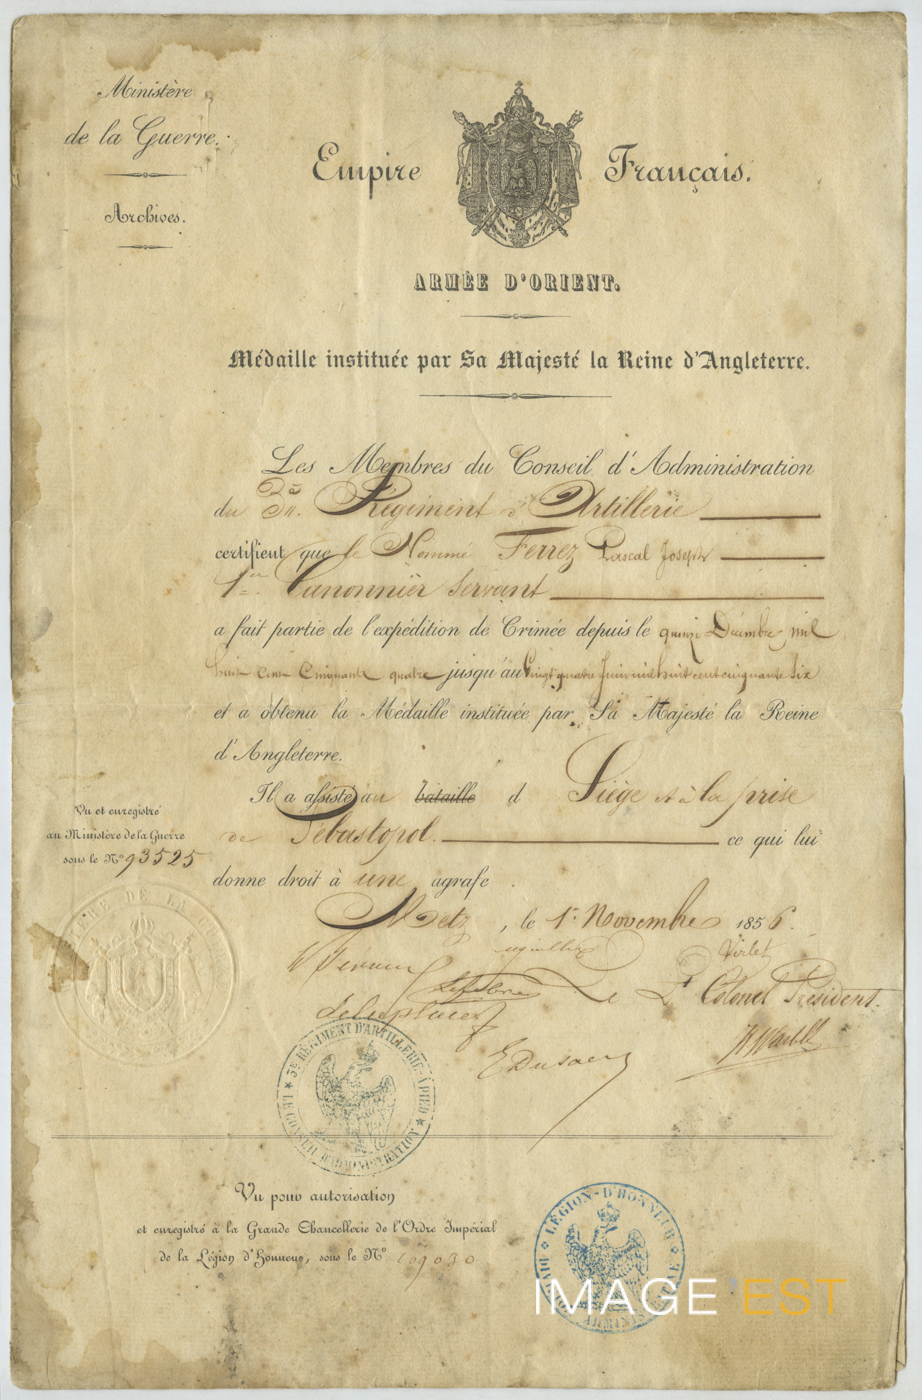 Ministère
de la Guerre.
Archives.
Empire Français.
ARMÉE D'ORIENT.
Médaille instituée par Sa Majesté la Reine d'Angleterre.
Les Membres du Conseil d'Administration
du Régiment d'Artillerie
certifient que le Nommé Ferrez Pascal Joseph
1er Canonnier Servant
a fait partie de l'expédition de Crimée depuis le quinze Décembre mil
huit cent Cinquante quatre jusqu'au vingt quatre Juin mil huit cent cinquante six
et a obtenu la Médaille instituée par Sa Majesté la Reine
d'Angleterre.
Il a assisté au bataille d Siège et à la prise
de Sebastopol ce qui lui
donne droit à une agrafe.
Vu et enregistré
au Ministère de la Guerre
sous le N° 93525
Metz, le 1er Novembre 1856.
Virlet
Lefebre
Le Lt Colonel Président.
E Dusaert
RÉGIMENT D'ARTILLERIE À PIED
LE CONSEIL D'ADMINISTRATION
Vu pour autorisation
et enregistré à la Grande Chancellerie de l'Ordre Impérial
de la Légion d'Honneur, sous le N° 109030
LÉGION-D'HONNEUR
IMAGE EST